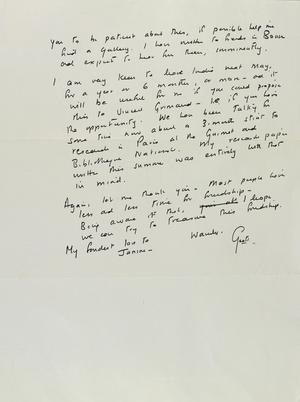 you to be patient about this, if possible help me
find a Gallery. I have written to friends in Bonn
and expect to hear from them, imminently.
I am very keen to leave India next May,
for a year or 6 months, or more – and it
will be useful for me if you could propose
this to Vivek
– if you have
the opportunity. We have been talking for
some time now about a 3-month stint to
research in Paris at the Guimet and
Bibliotheque Nationale. My research paper
written this summer was entirely with that
in mind.
Again, let me thank you – Most people have
less and less time for friendship –
Being aware of that, I hope
we can try to treasure this friendship.
My fondest love to Warmly,
Janine –